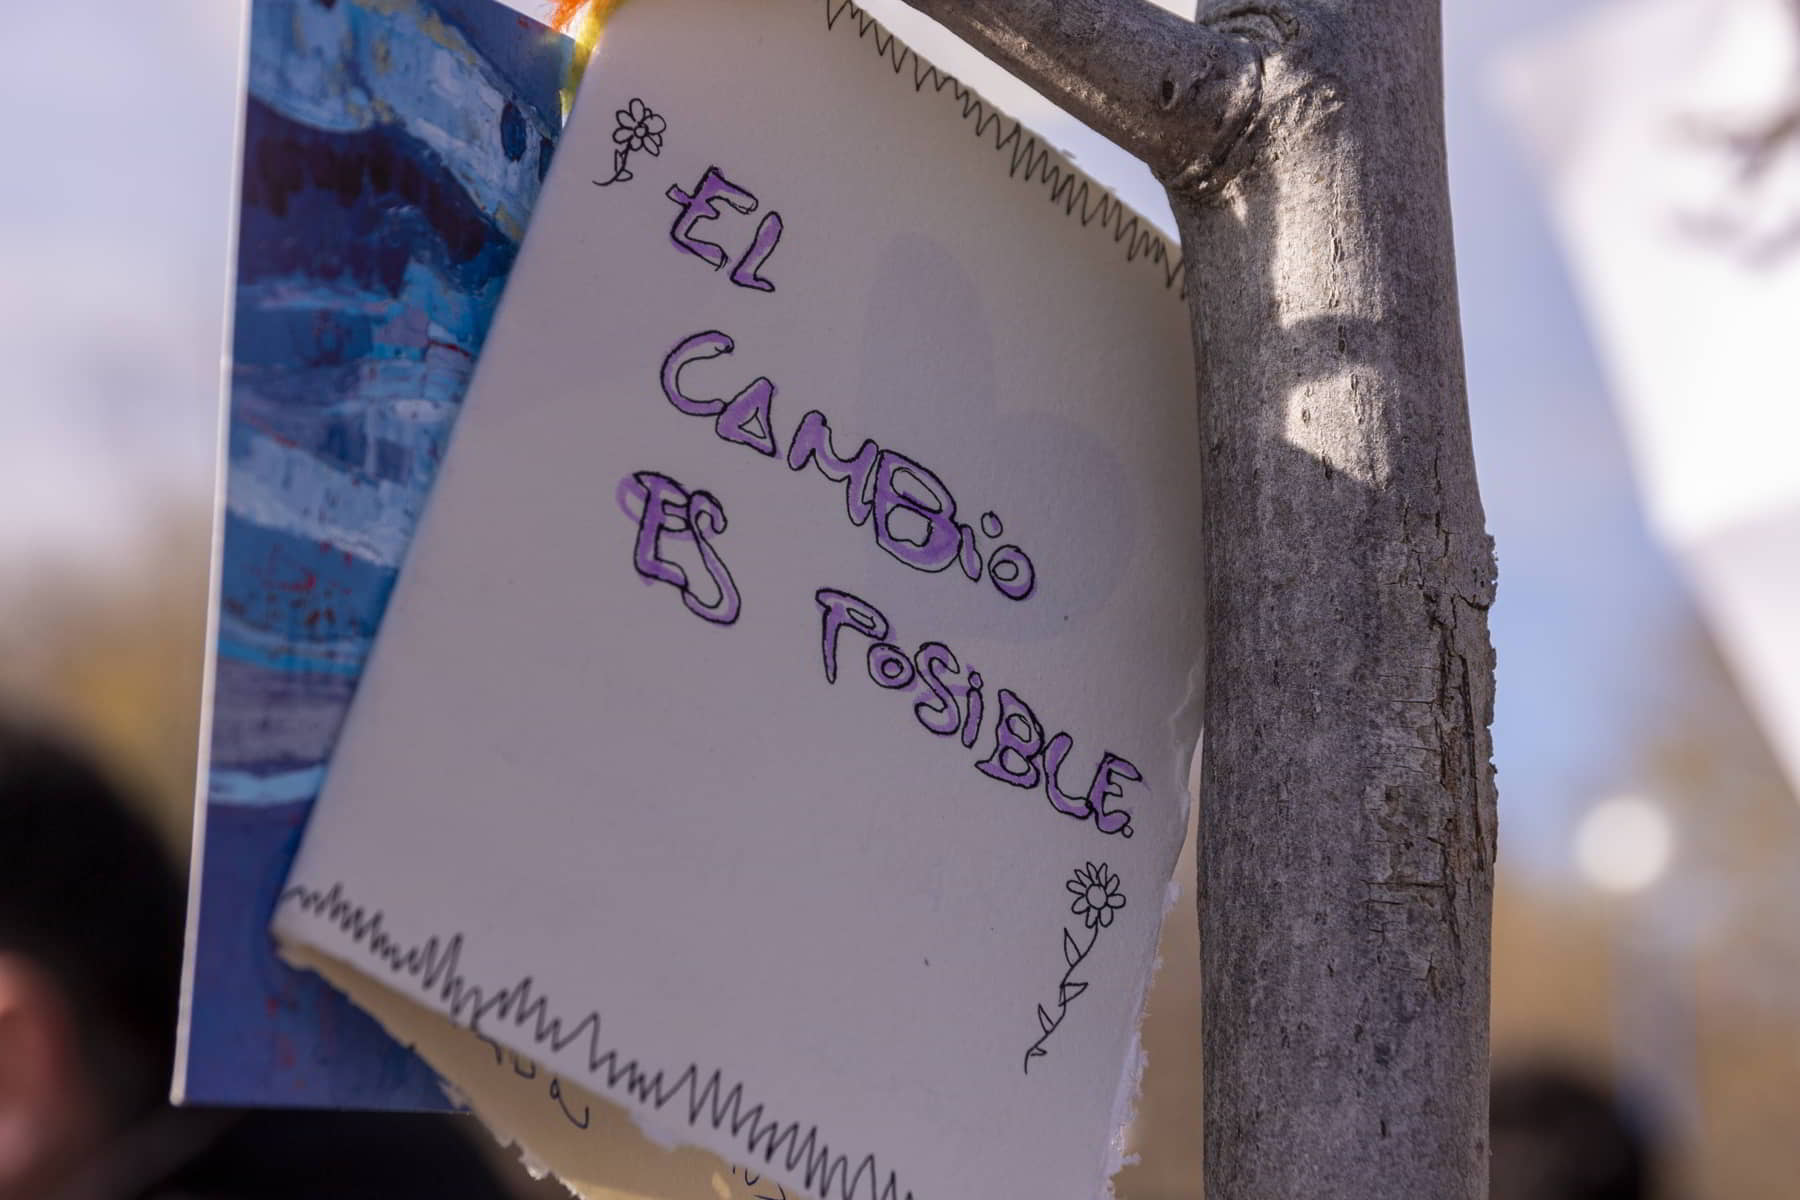 EL
CAMBiO
ES POSiBLE.